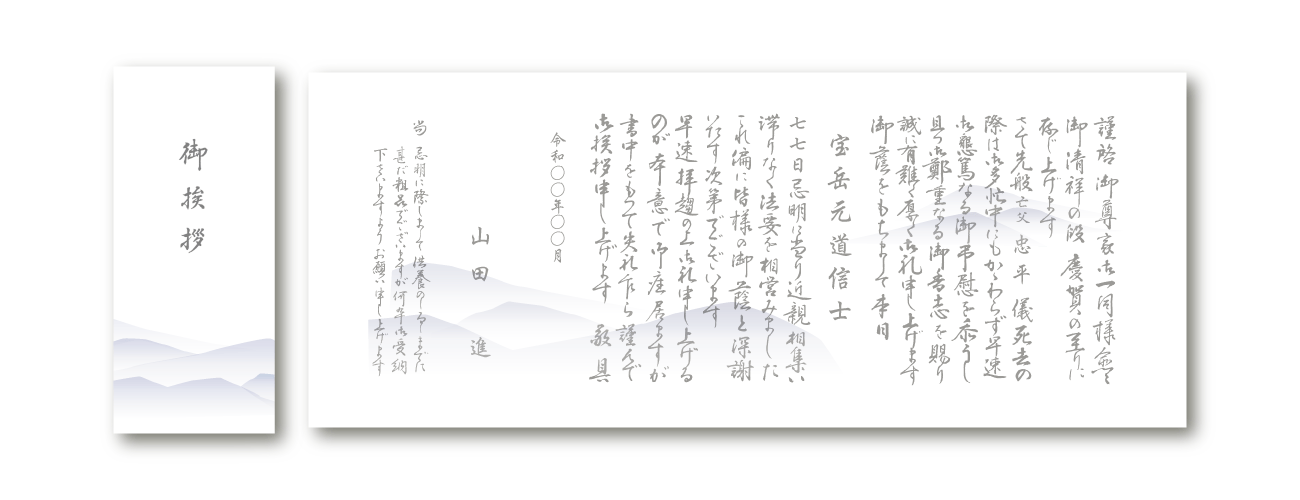 御挨拶
謹啓 御尊家御一同様愈々
御清祥の段 慶賀の至りに
存じ上げます
さて先般亡父 忠平 儀死去の
際は御多忙中にもかゝわらず早速
御懇篤なる御弔慰を忝うし
且つ御鄭重なる御香志を賜り
誠に有難く厚く御礼申し上げます
御蔭をもちまして本日
宝岳元道信士
七七日忌明に当り近親相集い
滞りなく法要を相営みました
これ偏に皆様の御蔭と深謝
いたす次第でございます
早速拝趨の上御礼申し上げる
のが本意で御座居ますが
書中をもって失礼乍ら謹んで
御挨拶申し上げます 敬具
令和〇〇年〇〇月
山田 進
尚 忌明に際しまして供養のしるしまでに
甚だ粗品でございますが何卒御受納
下さいますようお願い申し上げます